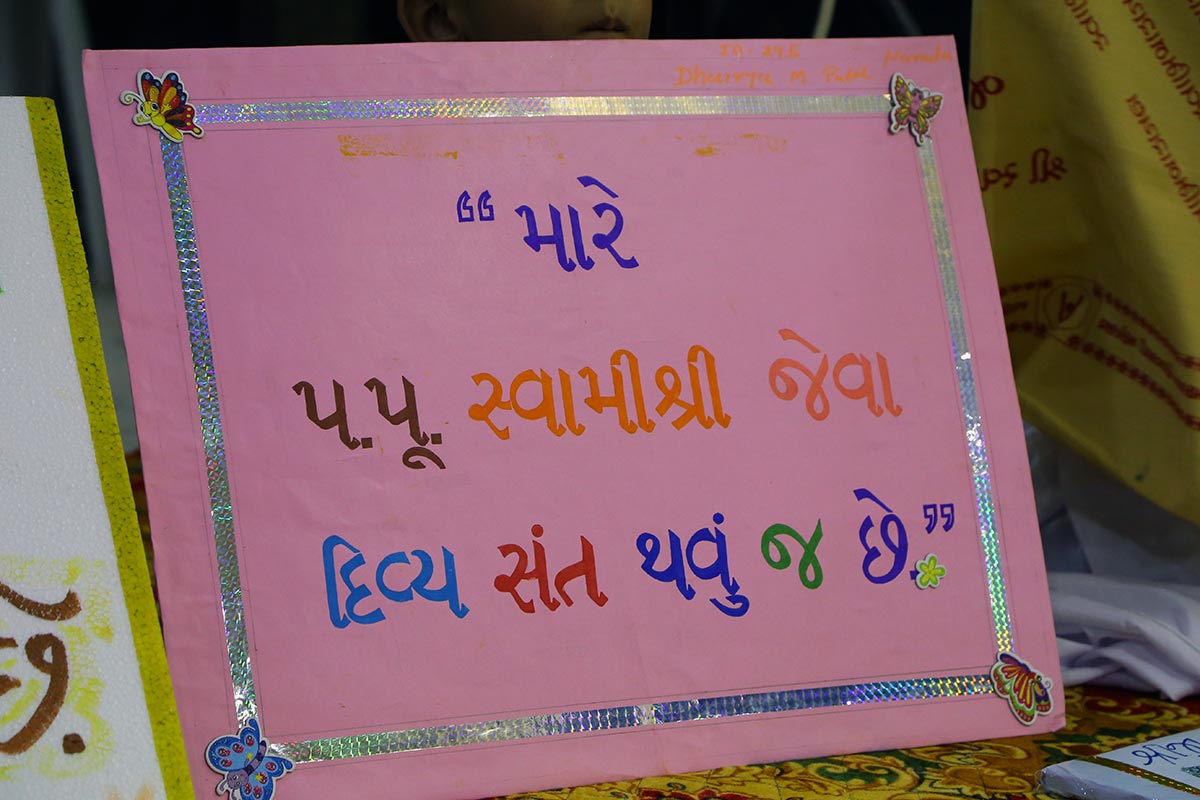 JA-295
Dhairya M Patel Narmada
“મારે
પ.પૂ. સ્વામીશ્રી જેવા
દિવ્ય સંત થવું જ છે.”